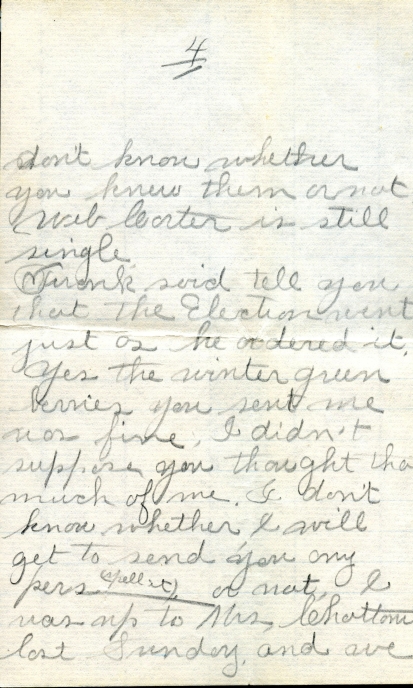 4
don't know whether
you knew them or not
Web Carter is still
single
Frank said tell you
that the Election went
just as he ordered it,
Yes the winter green
berries you sent me
was fine, I didn't
suppose you thought tha
much of me. I don't
know whether I will
get to send you any
pers (spell it), or not, I
was up to Mrs, Chattom
last Sunday, and we